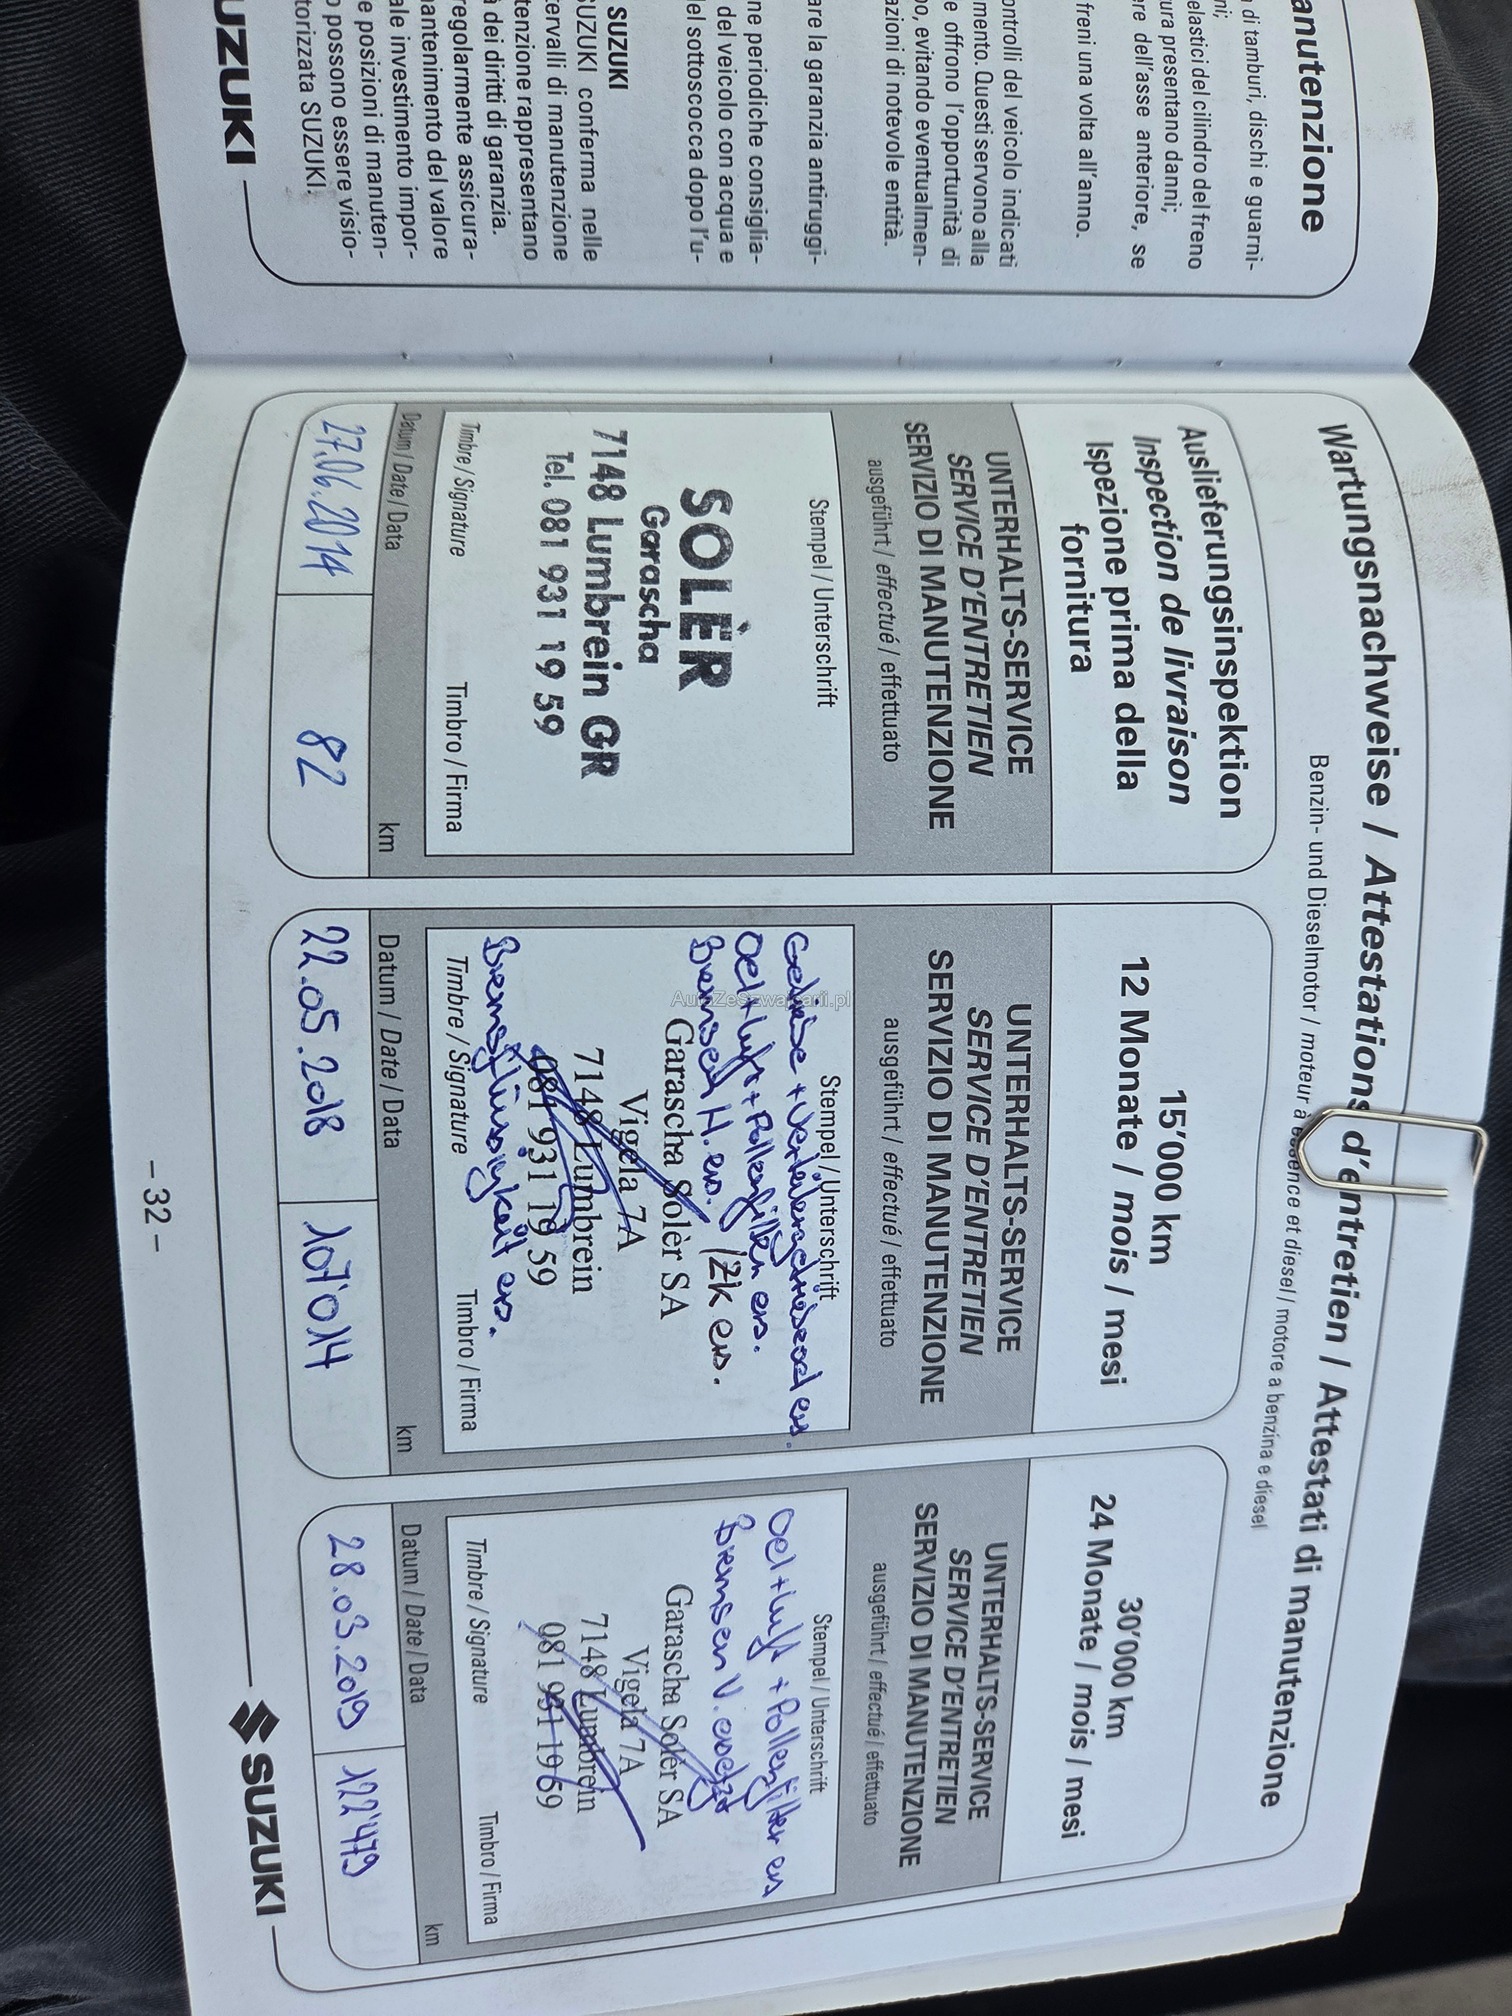 anutenzione
di tamburi, dischi e guarni-
ni;
elastici del cilindro del freno
ura presentano danni;
re dell'asse anteriore, se
freni una volta all'anno.
ontrolli del veicolo indicati
mento. Questi servono alla
e offrono l'opportunità di
o, evitando eventualmen-
azioni di notevole entità.
are la garanzia antiruggi-
ne periodiche consiglia-
del veicolo con acqua e
el sottoscocca dopo l'u-
SUZUKI
UZUKI conferma nelle
tervalli di manutenzione
tenzione rappresentano
dei diritti di garanzia.
regolarmente assicura-
mantenimento del valore
ale investimento impor-
e posizioni di manuten-
o possono essere visio-
torizzata SUZUKI.
UZUKI
Wartungsnachweise / Attestations d'entretien / Attestati di manutenzione
Benzin- und Dieselmotor / moteur à essence et diesel / motore a benzina e diesel
Auslieferungsinspektion
Inspection de livraison
Ispezione prima della
fornitura
UNTERHALTS-SERVICE
SERVICE D'ENTRETIEN
SERVIZIO DI MANUTENZIONE
ausgeführt / effectué / effettuato
Stempel / Unterschrift
SOLÈR
Garascha
7148 Lumbrein GR
Tel. 081 931 19 59
Timbre / Signature Timbro / Firma
Datum / Date / Data km
27.06.2014 82
15'000 km
12 Monate / mois / mesi
UNTERHALTS-SERVICE
SERVICE D'ENTRETIEN
SERVIZIO DI MANUTENZIONE
ausgeführt / effectué / effettuato
Stempel / Unterschrift
+ ers.
Oel + Luft + Pollenfilter ers.
Bremsen H. ers. / ZK ers.
Garascha Solèr SA
Vigela 7A
7148 Lumbrein
081 931 19 59
Bremsflüssigkeit ers.
Timbre / Signature Timbro / Firma
Datum / Date / Data km
22.05.2018 107'014
30'000 km
24 Monate / mois / mesi
UNTERHALTS-SERVICE
SERVICE D'ENTRETIEN
SERVIZIO DI MANUTENZIONE
ausgeführt / effectué / effettuato
Stempel / Unterschrift
Oel + Luft + Pollenfilter ers
Bremsen V. ersetzt
Garascha Solèr SA
Vigela 7A
7148 Lumbrein
081 931 19 59
Timbre / Signature Timbro / Firma
Datum / Date / Data km
28.03.2019 122'479
– 32 –
SUZUKI
AutoZeSzwajcarii.pl